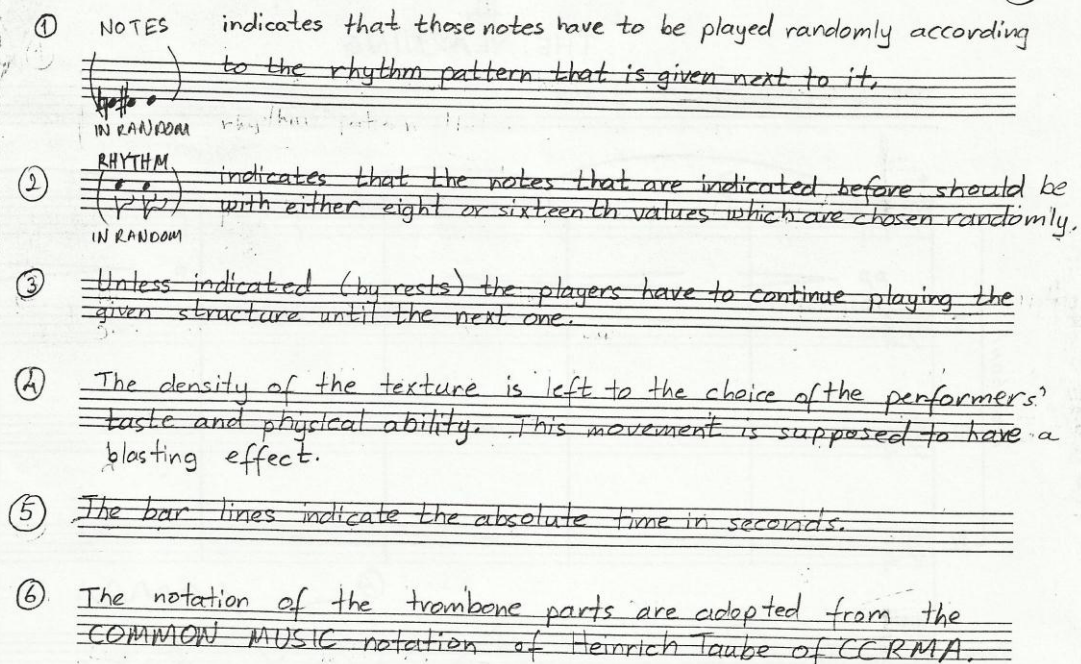 ① NOTES indicates that those notes have to be played randomly according
to the rhythm pattern that is given next to it.
IN RANDOM
② RHYTHM indicates that the notes that are indicated before should be
with either eight or sixteenth values which are chosen randomly.
IN RANDOM
③ Unless indicated (by rests) the players have to continue playing the
given structure until the next one.
④ The density of the texture is left to the choice of the performers'
taste and physical ability. This movement is supposed to have a
blasting effect.
⑤ The bar lines indicate the absolute time in seconds.
⑥ The notation of the trombone parts are adopted from the
COMMON MUSIC notation of Heinrich Taube of CCRMA.